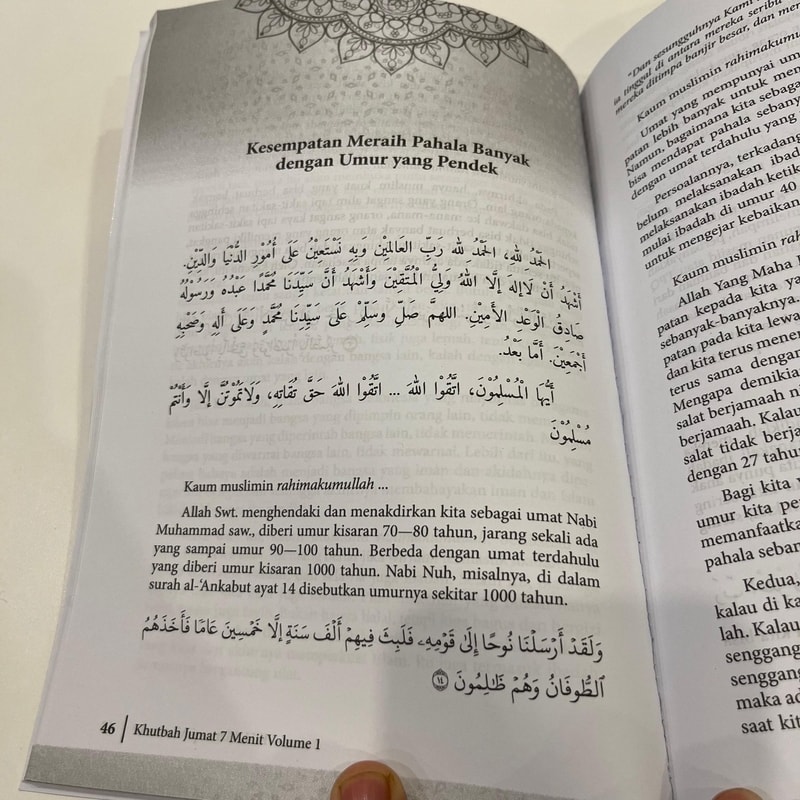 Kesempatan Meraih Pahala Banyak
dengan Umur yang Pendek
الحَمْدُ لِلهِ، الحَمْدُ لله رَبِّ العَالَمِيْنَ وَبِهِ نَسْتَعِيْنُ عَلَى أُمُوْرِ الدُّنْيَا وَالدِّيْنِ.
أَشْهَدُ أَنْ لَاإِلهَ إِلَّا اللهُ وَلِيُّ الْمُتَّقِيْنَ وَأَشْهَدُ أَنَّ سَيِّدَنَا مُحَمَّدًا عَبْدُهُ وَرَسُوْلُهُ
صَادِقُ الْوَعْدِ الأَمِيْنِ. اللهمَّ صَلِّ وَسَلِّمْ عَلَى سَيِّدِنَا مُحَمَّدٍ وَعَلَى أَلِهِ وَصَحْبِهِ
أَجْمَعِيْنَ. أَمَّا بَعْدُ.
أَيُّهَا الْمُسْلِمُوْنَ، اتَّقُوْا اللهَ ... اتَّقُوْا اللهَ حَقَّ تُقَاتِهِ، وَلَاتَمُوْتُنَّ إِلَّا وَأَنْتُمْ
مُسْلِمُوْنَ
Kaum muslimin rahimakumullah ...
Allah Swt. menghendaki dan menakdirkan kita sebagai umat Nabi
Muhammad saw., diberi umur kisaran 70—80 tahun, jarang sekali ada
yang sampai umur 90—100 tahun. Berbeda dengan umat terdahulu
yang diberi umur kisaran 1000 tahun. Nabi Nuh, misalnya, di dalam
surah al-‘Ankabut ayat 14 disebutkan umurnya sekitar 1000 tahun.
وَلَقَدْ أَرْسَلْنَا نُوحًا إِلَىٰ قَوْمِهِۦ فَلَبِثَ فِيهِمْ أَلْفَ سَنَةٍ إِلَّا خَمْسِينَ عَامًا فَأَخَذَهُمُ
ٱلطُّوفَانُ وَهُمْ ظَٰلِمُونَ ١٤
46 | Khutbah Jumat 7 Menit Volume 1
"Dan sesungguhnya Kami
ia tinggal di antara mereka seribu
mereka ditimpa banjir besar, dan
Kaum muslimin rahimakumu
Umat yang mempunyai um
patan lebih banyak untuk men
Namun, bagaimana kita sebaga
bisa mendapat pahala sebany
dengan umat terdahulu yang
Persoalannya, terkadang
belum melaksanakan ibad
melaksanakan ibadah ketik
mulai ibadah di umur 40
untuk mengejar kebaikan
Kaum muslimin rah
Allah Yang Maha
patan kepada kita yan
sebanyak-banyaknya.
patan pada kita lewa
dan kita terus mener
terus sama dengan
Mengapa demikia
salat berjamaah n
berjamaah. Kalau
salat tidak berja
dengan 27 tahu
Bagi kita y
umur kita pe
memanfaatk
pahala seban
Kedua,
kalau di ka
lah. Kalau
senggang
senggang
maka ad
saat kit